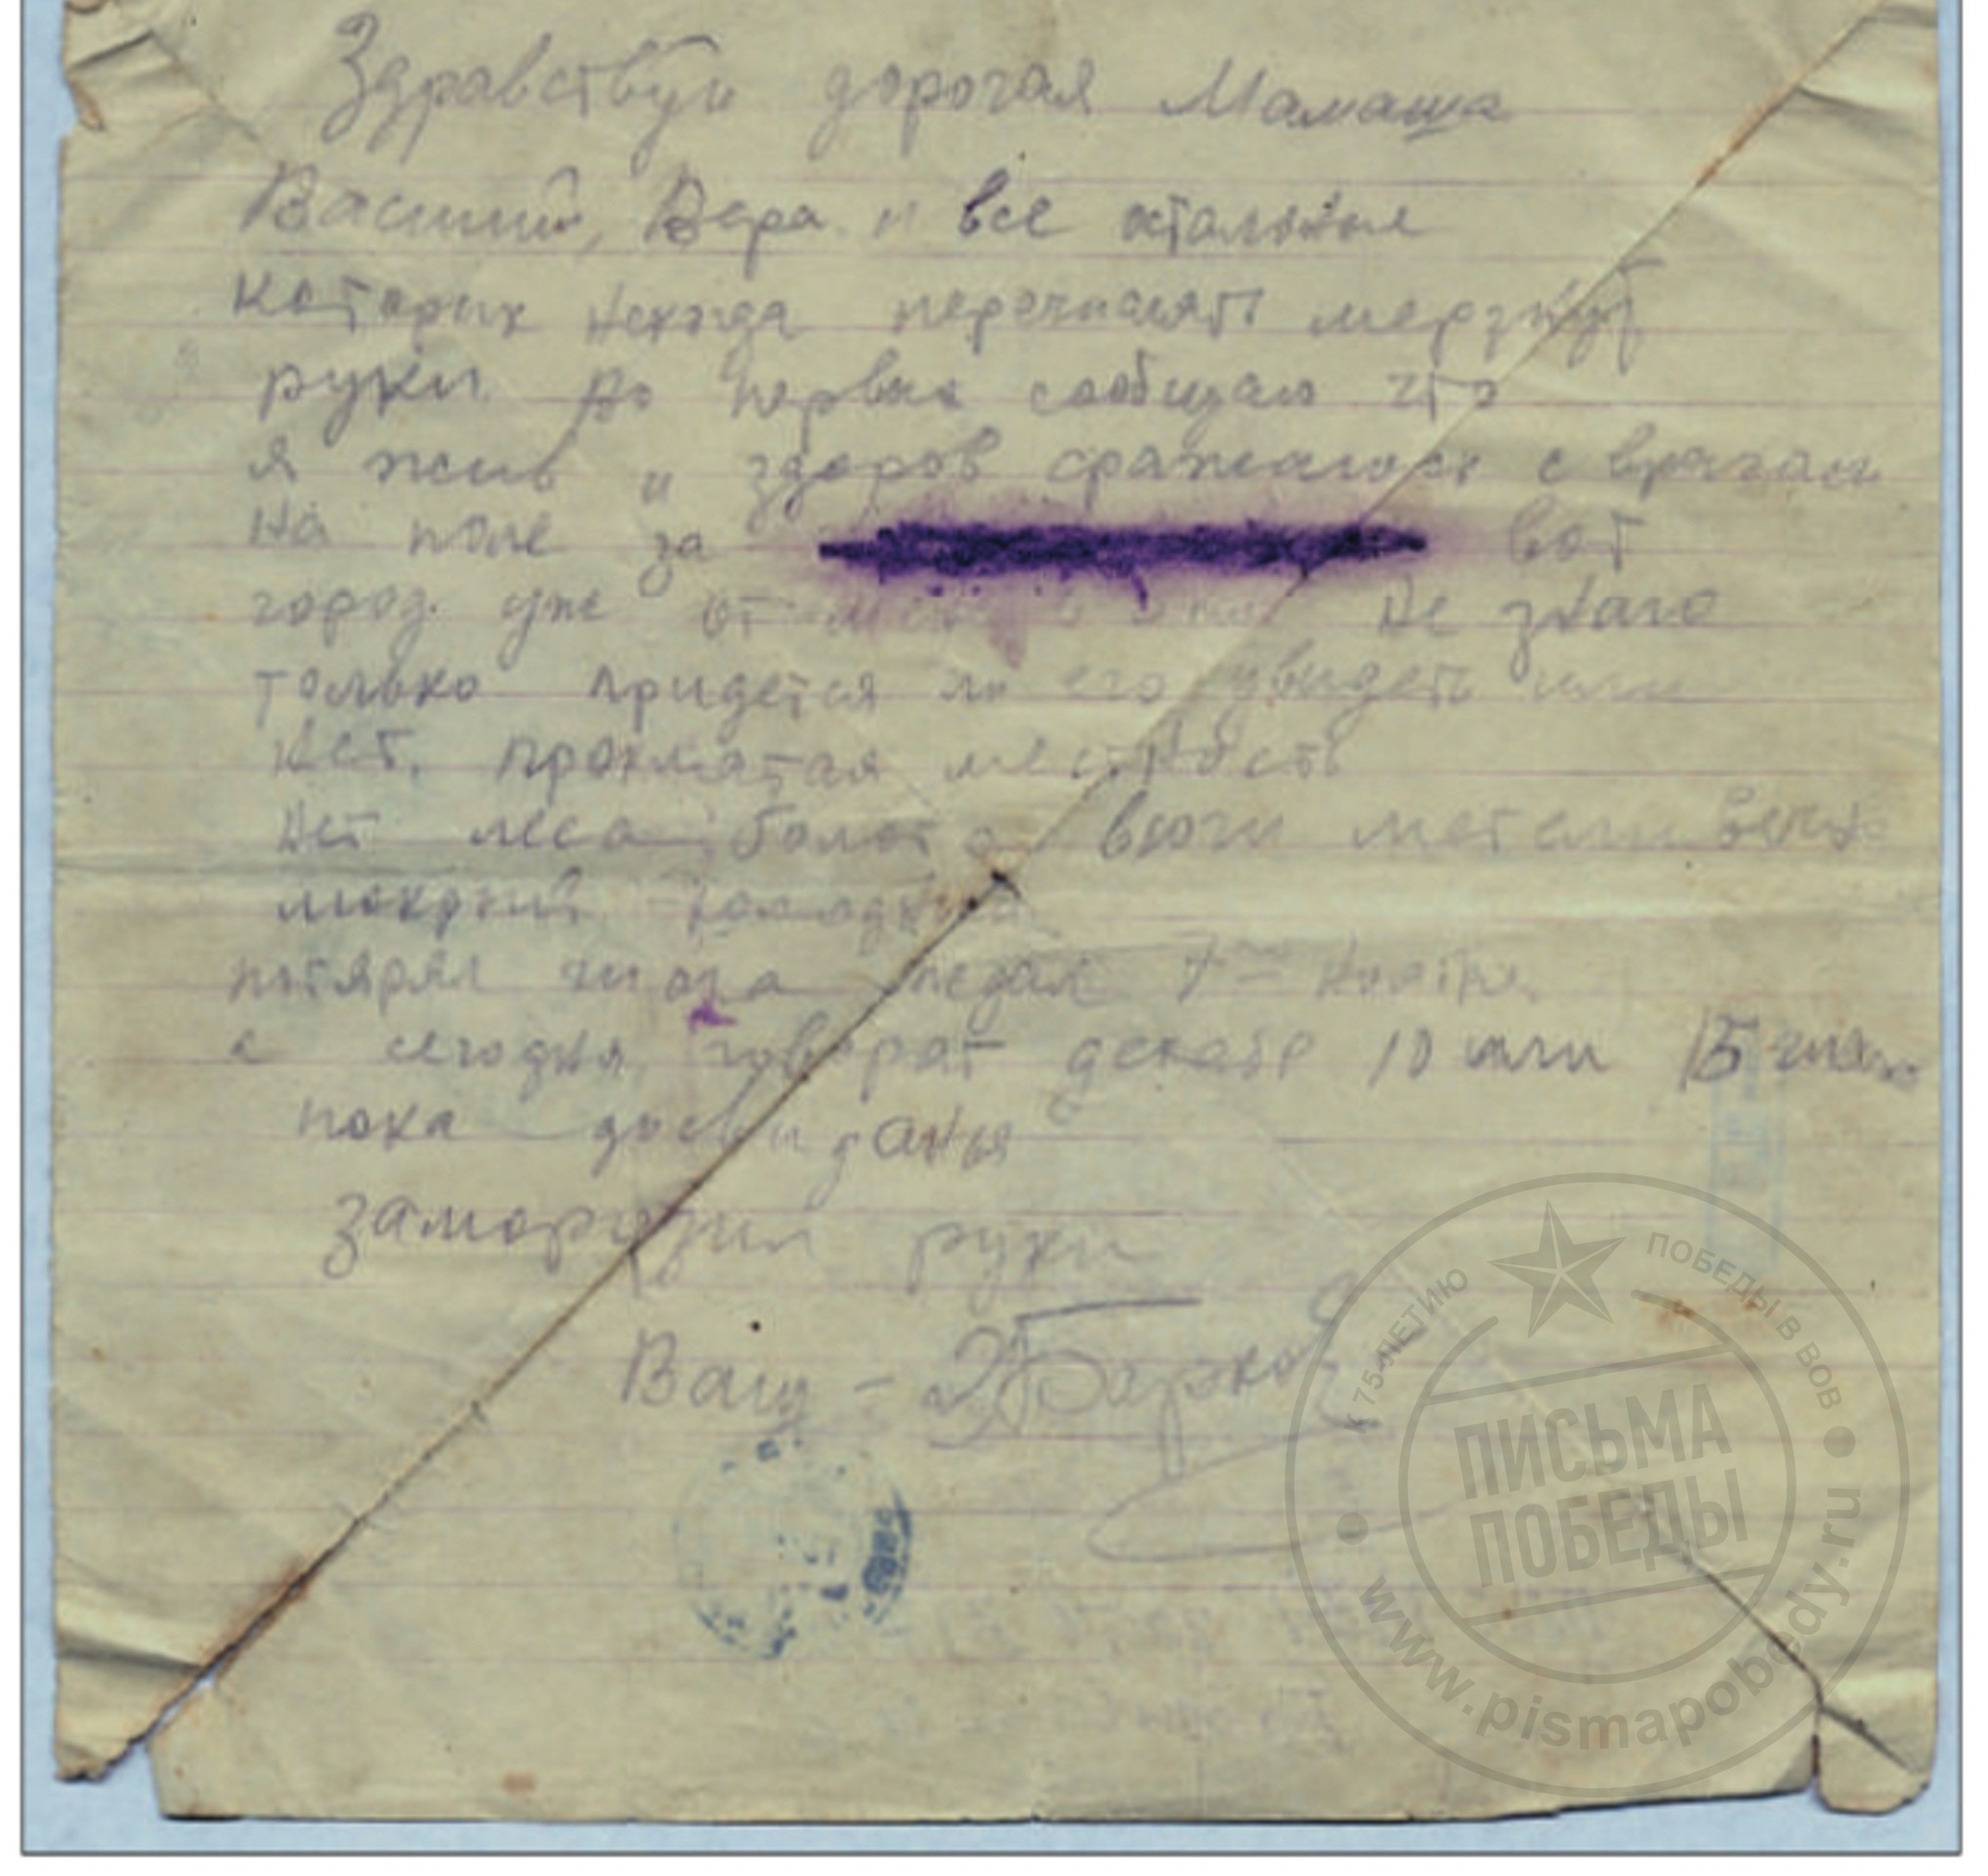 Здравствуй дорогая Мамаша
Василий, Вера и все остальные
которых некогда перечислять мерзнут
руки во первых сообщаю что
я жив и здоров сражаюсь с врагам
на поле за вот
город уже от не знаю
только придется ли его увидеть или
нет. проклятая местность
нет леса болота вюги метели вечно
мокрый холодный
потярял числа неделе 7
а сегодня говорат декабр 10 или 15 число
пока досвиданья
заморозил руки
Ваш -
К 75-ЛЕТИЮ ПОБЕДЫ В ВОВ
ПИСЬМА
ПОБЕДЫ
www.pismapobedy.ru